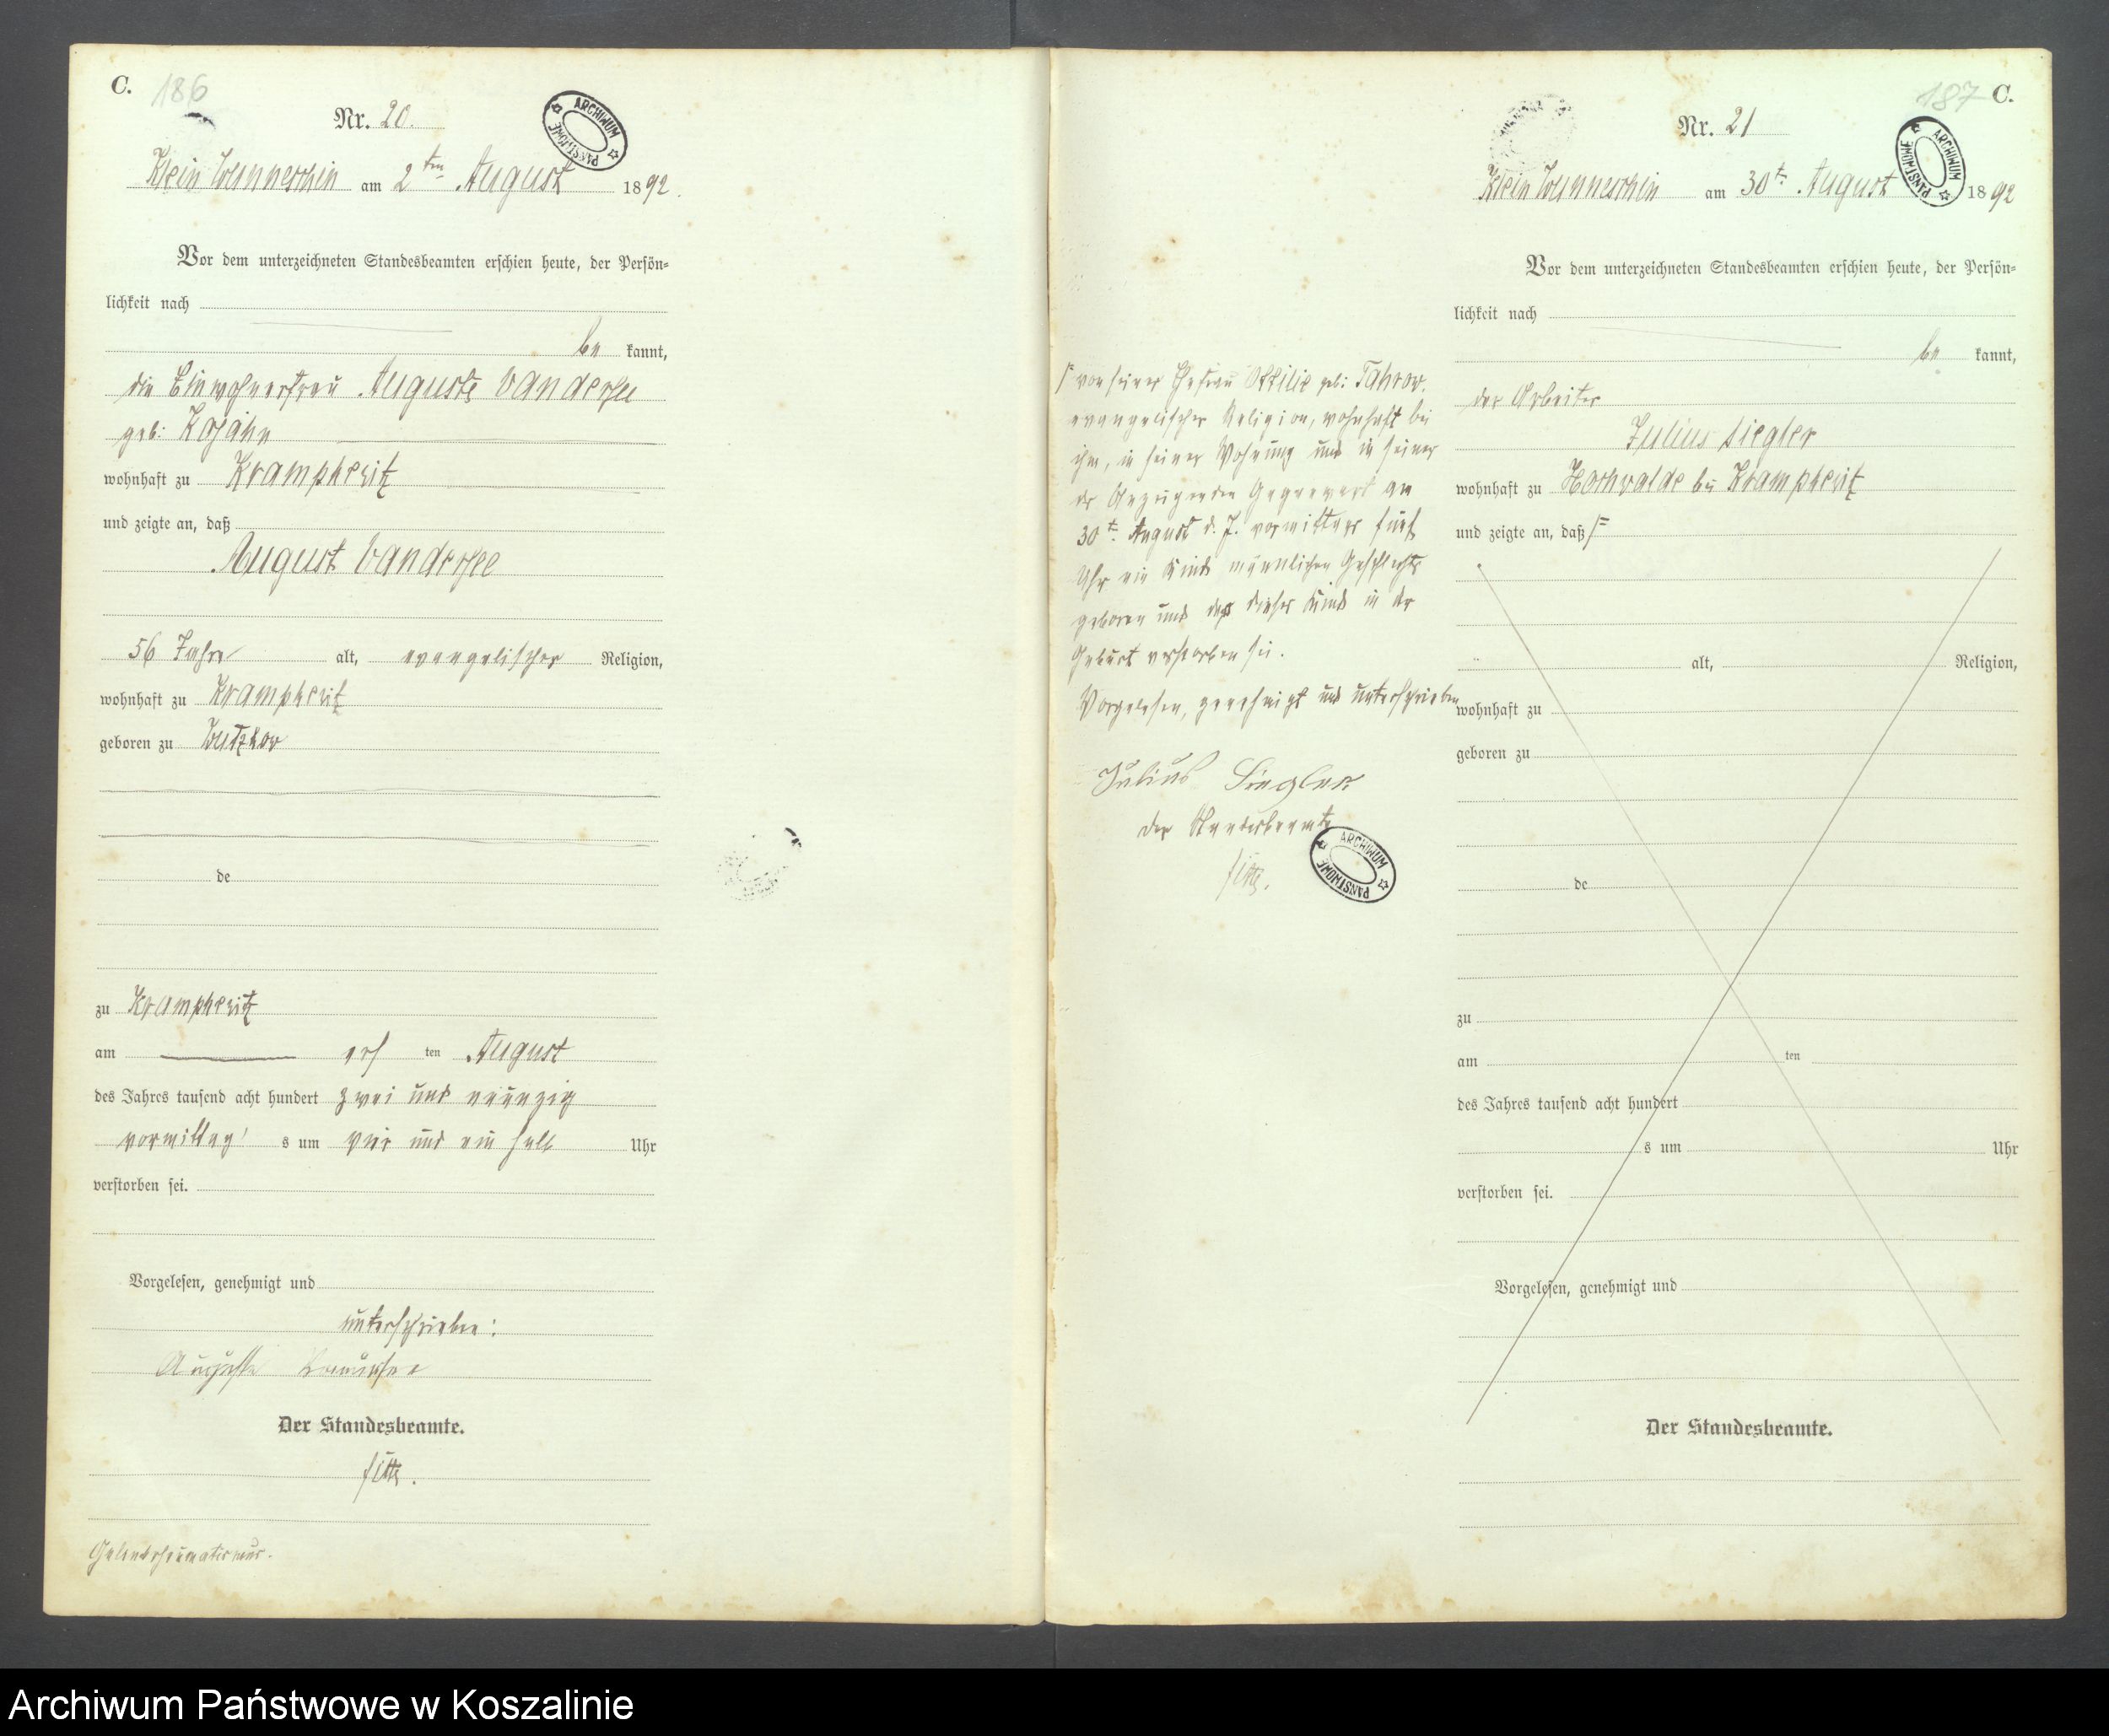 C. 186
Nr. 20.
ARCHIWUM PAŃSTWOWE
Klein Wunneschin am 2ten August 1892.
Vor dem unterzeichneten Standesbeamten erschien heute, der Persön=
lichkeit nach
be kannt,
die Einwohnerfrau Auguste Vandersee
geb:
wohnhaft zu Krampkewitz
und zeigte an, daß
August Vandersee
56 Jahre alt, evangelischer Religion,
wohnhaft zu Krampkewitz
geboren zu Wutzkow
de
zu Krampkewitz
am ersten August
des Jahres tausend acht hundert zwei und neunzig
vormittags um vier und ein halb Uhr
verstorben sei.
Vorgelesen, genehmigt und
unterschrieben:
Auguste
Der Standesbeamte.
Gelenkrheumatismus.
187 C.
Nr. 21
ARCHIWUM PAŃSTWOWE
Klein Wunneschin am 30t. August 1892
Vor dem unterzeichneten Standesbeamten erschien heute, der Persön=
lichkeit nach
be kannt,
der Arbeiter
Julius Siegler
wohnhaft zu Hochwalde bei Krampkewitz
und zeigte an, daß
alt, Religion,
wohnhaft zu
geboren zu
de
zu
am ten
des Jahres tausend acht hundert
s um Uhr
verstorben sei.
Vorgelesen, genehmigt und
Der Standesbeamte.
von seiner Ehefrau Ottilie geb: Tahrow,
evangelischer Religion, wohnhaft bei
ihm, in seiner Wohnung und in seiner
des Anzeigenden Gegenwart am
30t. August d. J. vormittags fünf
Uhr ein Kind männlichen Geschlechts
geboren und daß dieses Kind in der
Geburt verstorben sei.
Vorgelesen, genehmigt und unterschrieben
Julius Siegler
Der Standesbeamte
ARCHIWUM PAŃSTWOWE
Archiwum Państwowe w Koszalinie